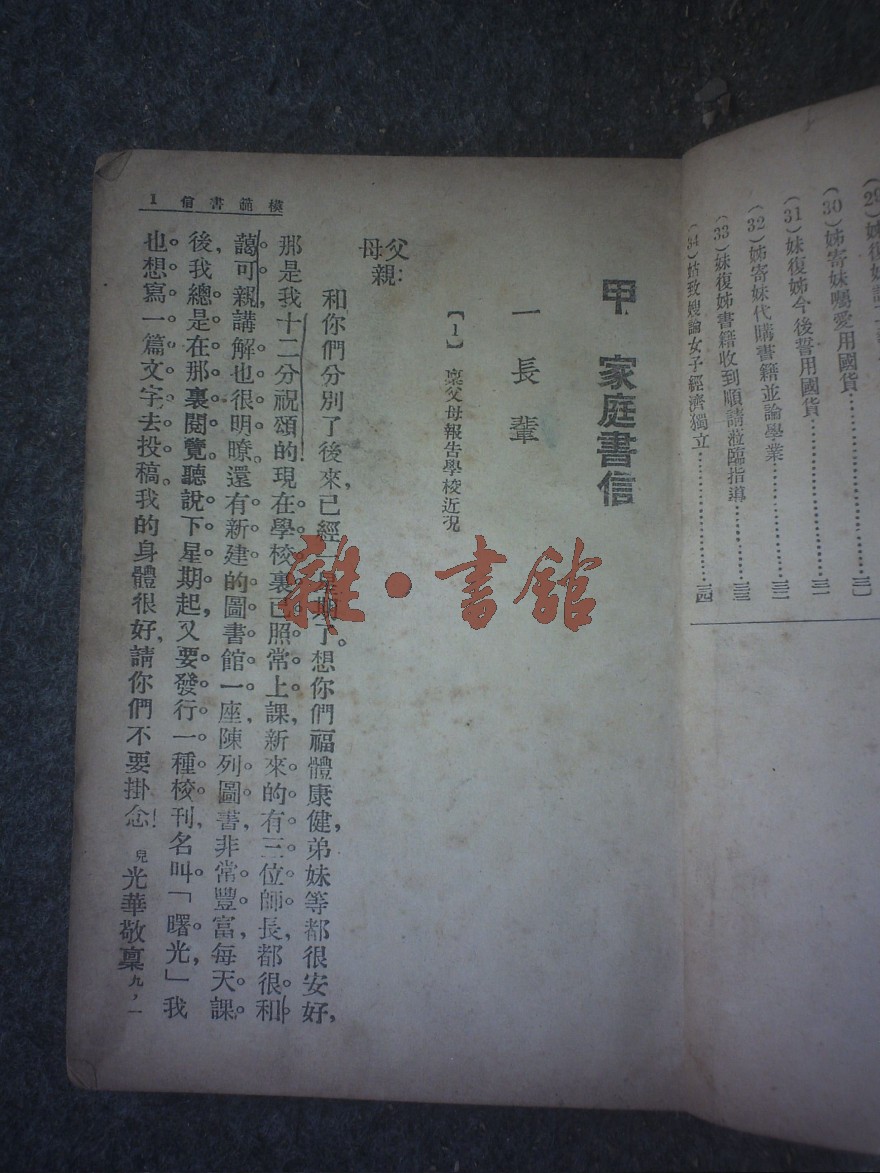 姊寄妹囑愛用國貨 (30) 三〇
妹復姊今後誓用國貨 (31) 三一
(32) 姊寄妹代購書籍並論學業 三二
(33) 妹復姊書籍收到順請蒞臨指導 三三
(34) 姑致嫂論女子經濟獨立 三四
甲 家庭書信
一 長輩
【1】 稟父母報告學校近況
父母親:
和你們分別了後來,已經一星期了。想你們福體康健,弟妹等都很安好,
那是我十二分祝頌的!現在學校裏已照常上課,新來的有三位師長,都很和
藹可親,講解也很明瞭。還有新建的圖書館一座,陳列圖書,非常豐富,每天課
後,我總是在那裏閱覽。聽說下星期起,又要發行一種校刊,名叫「曙光,」我
也想寫一篇文字去投稿。我的身體很好,請你們不要掛念!兒光華敬稟九,一
模範書信 1
雜·書館